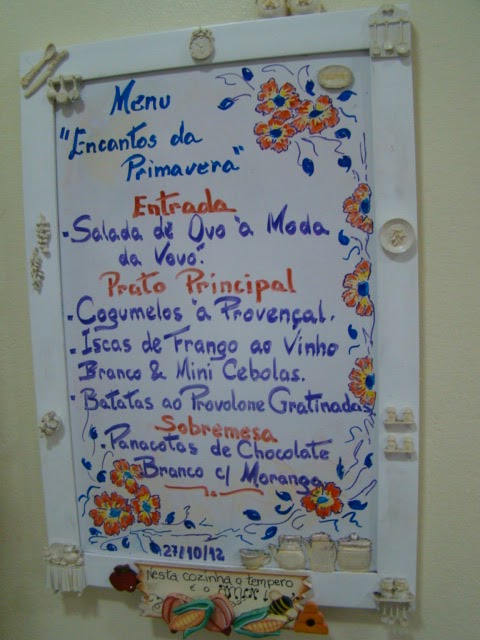 Menu
"Encantos da
Primavera"
Entrada
• Salada de Ovo "a Moda
da Vovó".
Prato Principal
• Cogumelos "a Provençal.
• Iscas de Frango ao Vinho
Branco & Mini Cebolas.
• Batatas ao Provolone Gratinadas
Sobremesa
• Panacotas de Chocolate
Branco c/ Morango
27/10/12
Nesta cozinha o tempero
é o AMOR